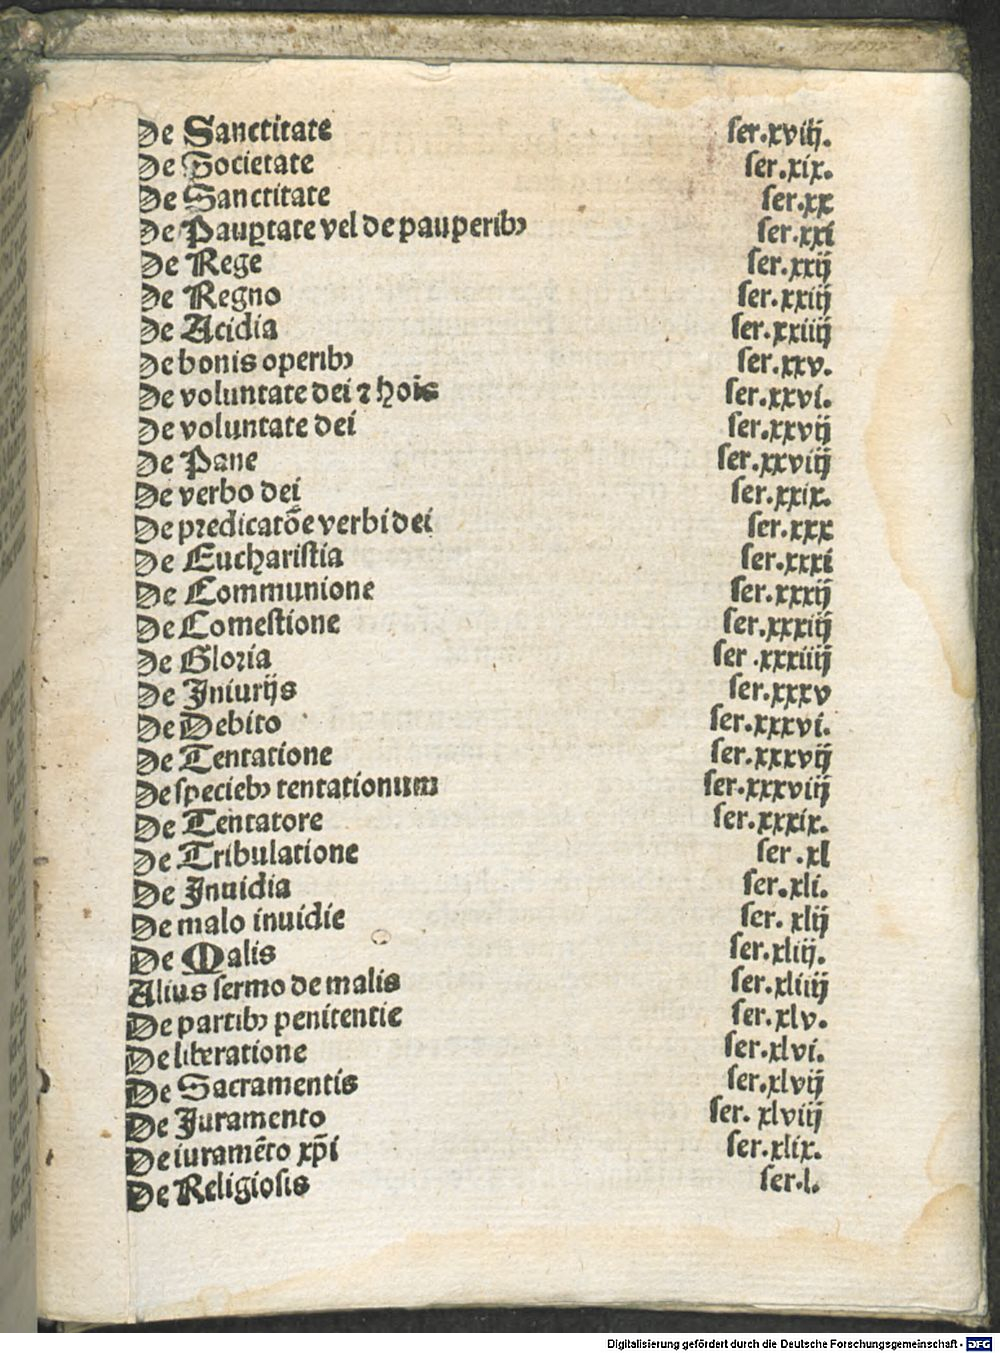 De Sanctitate ser.xviij.
De Societate ser.xix.
De Sanctitate ser.xx
De Paup̱tate vel de pauperibꝰ ser.xxi
De Rege ser.xxij
De Regno ser.xxiij
De Acidia ser.xxiiij
De bonis operibꝰ ser.xxv.
De voluntate dei ⁊ hoīs ser.xxvi.
De voluntate dei ser.xxvij
De Pane ser.xxviij
De verbo dei ser.xxix.
De predicatōe verbi dei ser.xxx
De Eucharistia ser.xxxi
De Communione ser.xxxij
De Comestione ser.xxxiij
De Gloria ser .xxxiiij
De Iniurijs ser.xxxv
De Debito ser.xxxvi.
De Tentatione ser.xxxvij
De speciebꝰ tentationum ser.xxxviij
De Tentatore ser.xxxix.
De Tribulatione ser .xl
De Inuidia ser.xli.
De malo inuidie ser. xlij
De Malis ser.xliij.
Alius sermo de malis ser.xliiij
De partibꝰ penitentie ser.xlv.
De liberatione ser.xlvi.
De Sacramentis ser.xlvij
De Iuramento ser. xlviij
De iuramēto xp̄i ser.xlix.
De Religiosis ser.l.
Digitalisierung gefördert durch die Deutsche Forschungsgemeinschaft - DFG